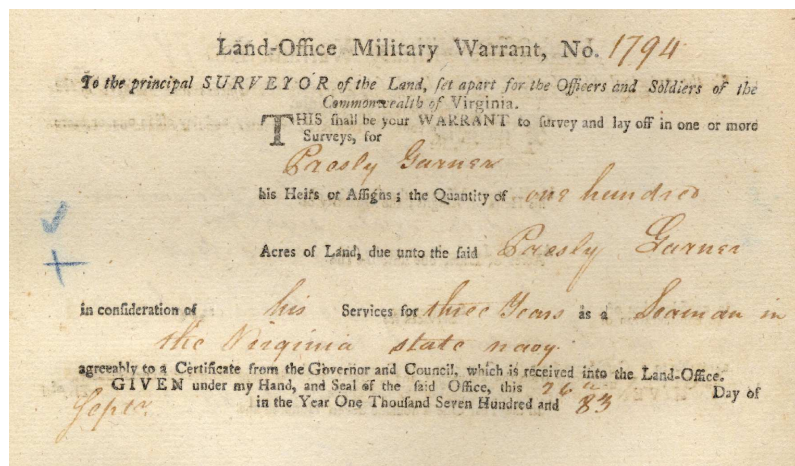 Land-Office Military Warrant, No. 1794
To the principal SURVEYOR of the Land, ſet apart for the Officers and Soldiers of the
Commonwealth of Virginia.
THIS ſhall be your WARRANT to ſurvey and lay off in one or more
Surveys, for
Presly Garner
his Heirs or Aſſigns; the Quantity of one hundred
Acres of Land, due unto the ſaid Presly Garner
in conſideration of his Services for three Years as a Seaman in
the Virginia state navy
agreeably to a Certificate from the Governor and Council, which is received into the Land-Office.
GIVEN under my Hand, and Seal of the ſaid Office, this 26th Day of
Septr in the Year One Thouſand Seven Hundred and 83